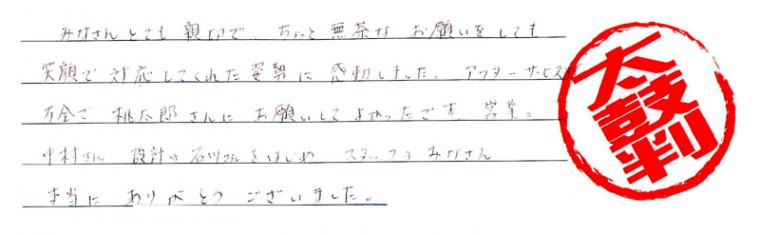 みなさんとても親切で、ちょっと無茶なお願いをしても
笑顔で対応してくれた姿勢に感動しました。アフターサービスも
万全で桃太郎さんにお願いしてよかったです。営業の
中村さん 設計の石川さんをはじめ スタッフのみなさん
本当にありがとうございました。
太鼓判